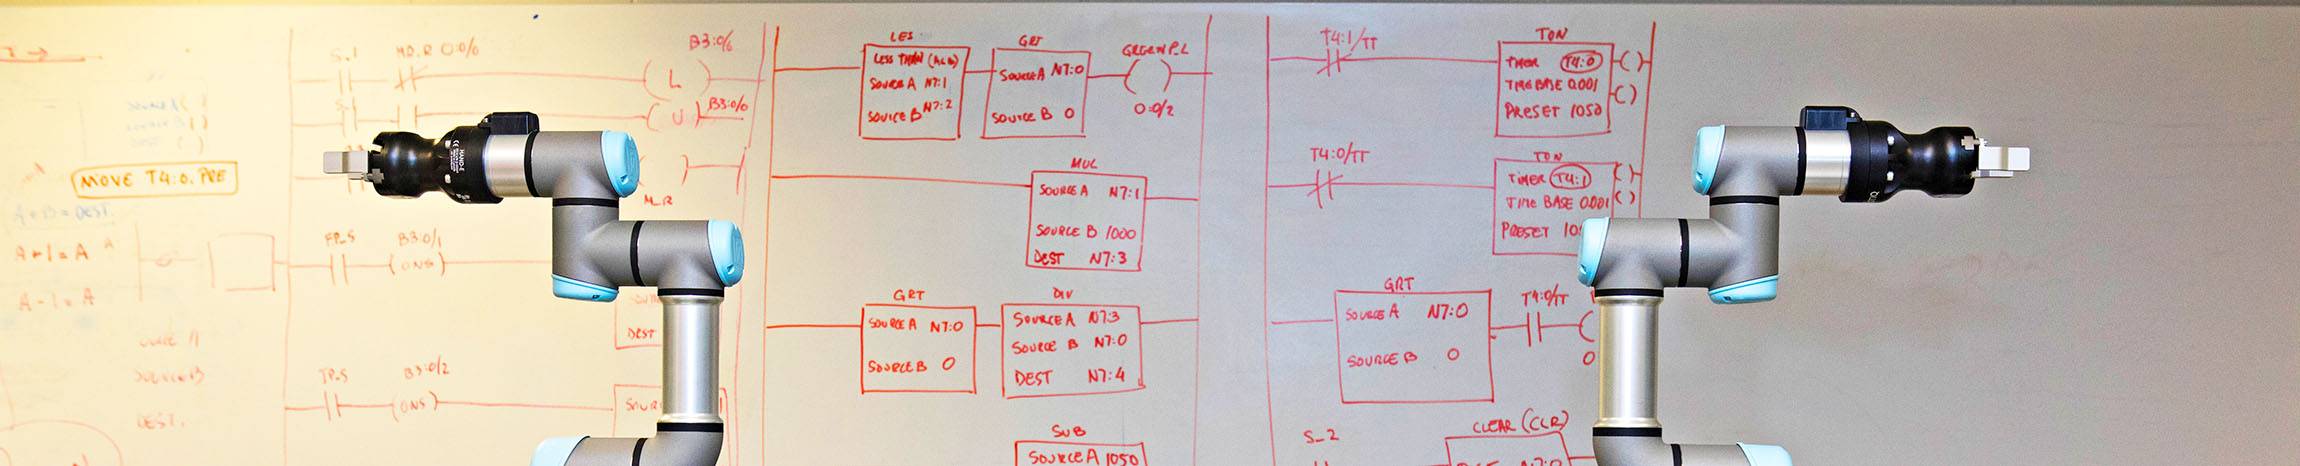 MOVE T4:0.PRE
A+B = DEST.
A+1 = A
A-1 = A
SOURCE B
DEST.
S_1
M0.R O:0/6
B3:0/6
L
S-1
U
B3:0/6
M_R
FP_S
B3:0/1
(ONS)
DEST
TP_S
B3:0/2
(ONS)
LES
LESS THAN (A<B)
SOURCE A N7:1
SOURCE B N7:2
GRT
SOURCE A N7:0
SOURCE B 0
O:0/2
MUL
SOURCE A N7:1
SOURCE B 1000
DEST N7:3
GRT
SOURCE A N7:0
SOURCE B 0
DIV
SOURCE A N7:3
SOURCE B N7:0
DEST N7:4
SUB
SOURCE A 1050
T4:1/TT
TON
TIMER T4:0
TIME BASE 0.001
PRESET 1050
T4:0/TT
TON
TIMER T4:1
TIME BASE 0.001
PRESET
GRT
SOURCE A N7:0
SOURCE B 0
T4:0/TT
S_2
CLEAR (CLR)
DEST N7:0
HAND-E